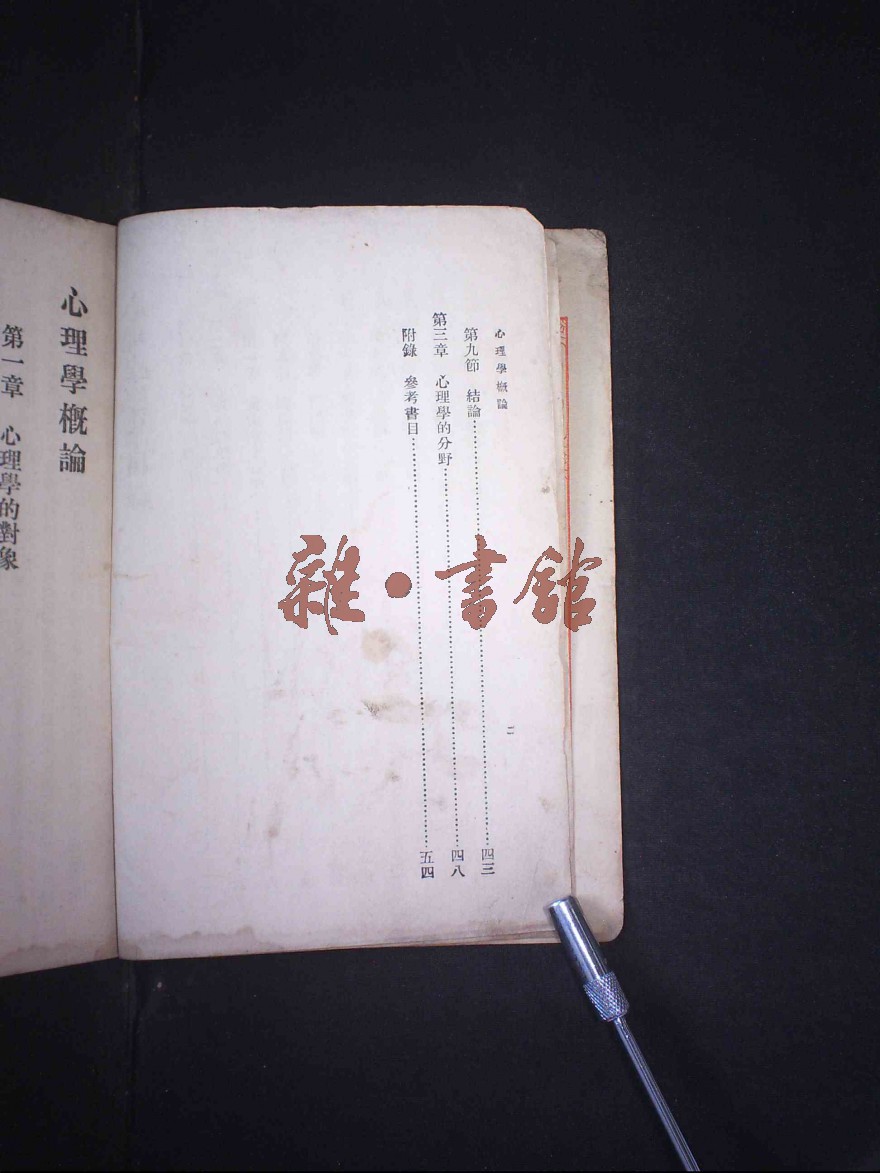 心理學概論
第九節　結論……四三
第三章　心理學的分野……四八
附錄　參考書目……五四
二
心理學概論
第一章　心理學的對象
雜·書館